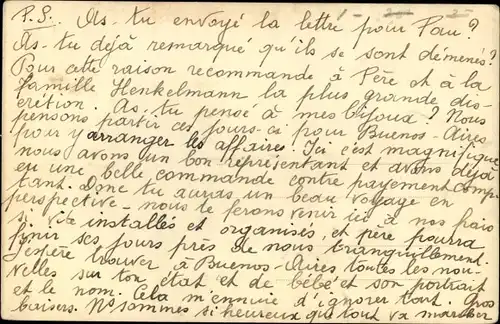 P.S. As-tu envoyé la lettre pour Pau?
As-tu déjà remarqué qu'ils se sont démenés?
Pour cette raison recommande à Père et à la
famille Henkelmann la plus grande dis-
crétion. As-tu pensé à mes bijoux? Nous
pensons partir ces jours-ci pour Buenos-Aires
pour y arranger les affaires! Ici c'est magnifique
nous avons un bon représentant et avons déjà
eu une belle commande contre payement comp-
tant. Donc tu auras un beau voyage en
perspective - nous te ferons venir ici à nos frais
si vite installés et organisés, et père pourra
finir ses jours près de nous tranquillement.
J'espère trouver à Buenos-Aires toutes les nou-
velles sur ton état et de bébé et son portrait
et le nom. Cela m'ennuie d'ignorer tout. Gros
baisers. Ns sommes si heureux que tout va marcher